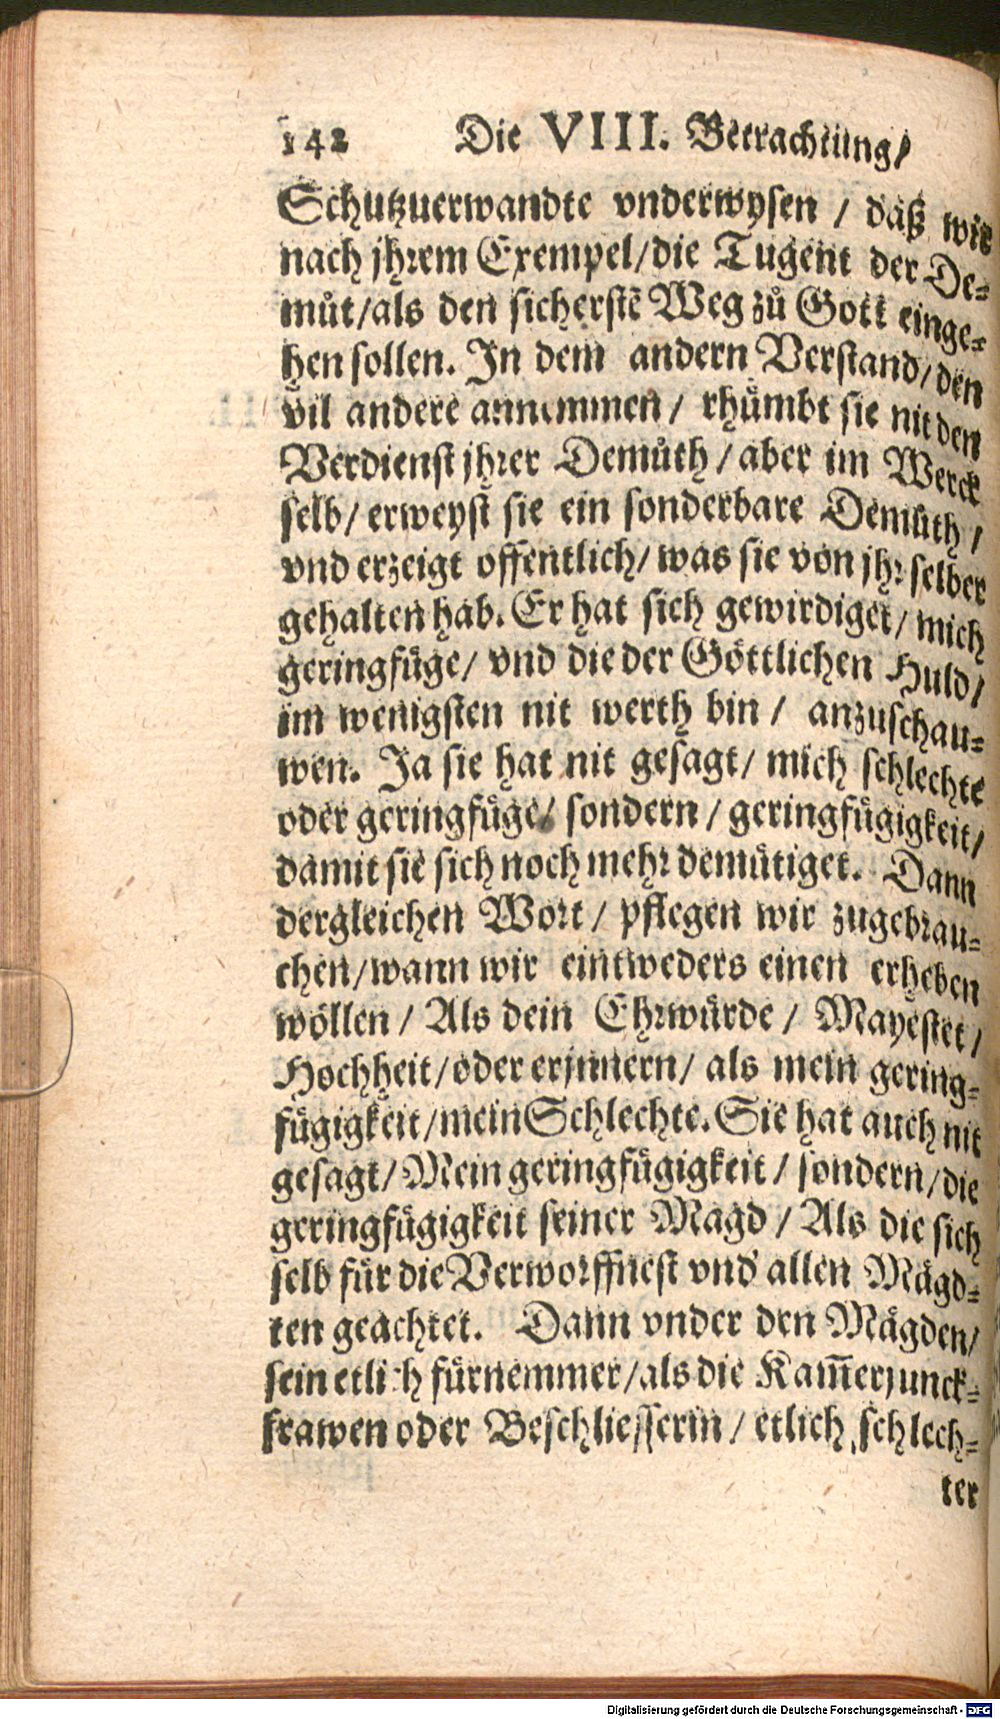 142 Die VIII. Betrachtung/
Schutzuerwandte vnderwysen / daß wir
nach jhrem Exempel/die Tugent der De-
muͤt/als den sicherstē Weg zuͦ Gott einge-
hen sollen. In dem andern Verstand/den
vil andere annemmen/ rhuͤmbt sie nit den
Verdienst jhrer Demuͤth/aber im Werck
selb/ erweyst sie ein sonderbare Demuͤth/
vnd erzeigt offentlich/ was sie von jhr selber
gehalten hab. Er hat sich gewirdiget/ mich
geringfuͤge/ vnd die der Goͤttlichen Huld/
im wenigsten nit werth bin/ anzuschau-
wen. Ja sie hat nit gesagt/ mich schlechte
oder geringfuͤge/ sondern/ geringfuͤgigkeit/
damit sie sich noch mehr demuͤtiget. Dann
dergleichen Wort/ pflegen wir zugebrau-
chen/wann wir eintweders einen erheben
woͤllen/ Als dein Ehrwuͤrde/ Mayestet/
Hochheit/oder erjnnern/ als mein gering-
fuͤgigkeit/mein Schlechte. Sie hat auch nit
gesagt/ Mein geringfuͤgigkeit/ sondern/die
geringfuͤgigkeit seiner Magd / Als die sich
selb fuͤr die Verworffnest vnd allen Maͤgd-
ten geachtet. Dann vnder den Maͤgden/
sein etlich fuͤrnemmer/als die Kam̄erjunck-
frawen oder Beschliesserin/ etlich schlech-
ter
Digitalisierung gefördert durch die Deutsche Forschungsgemeinschaft - DFG